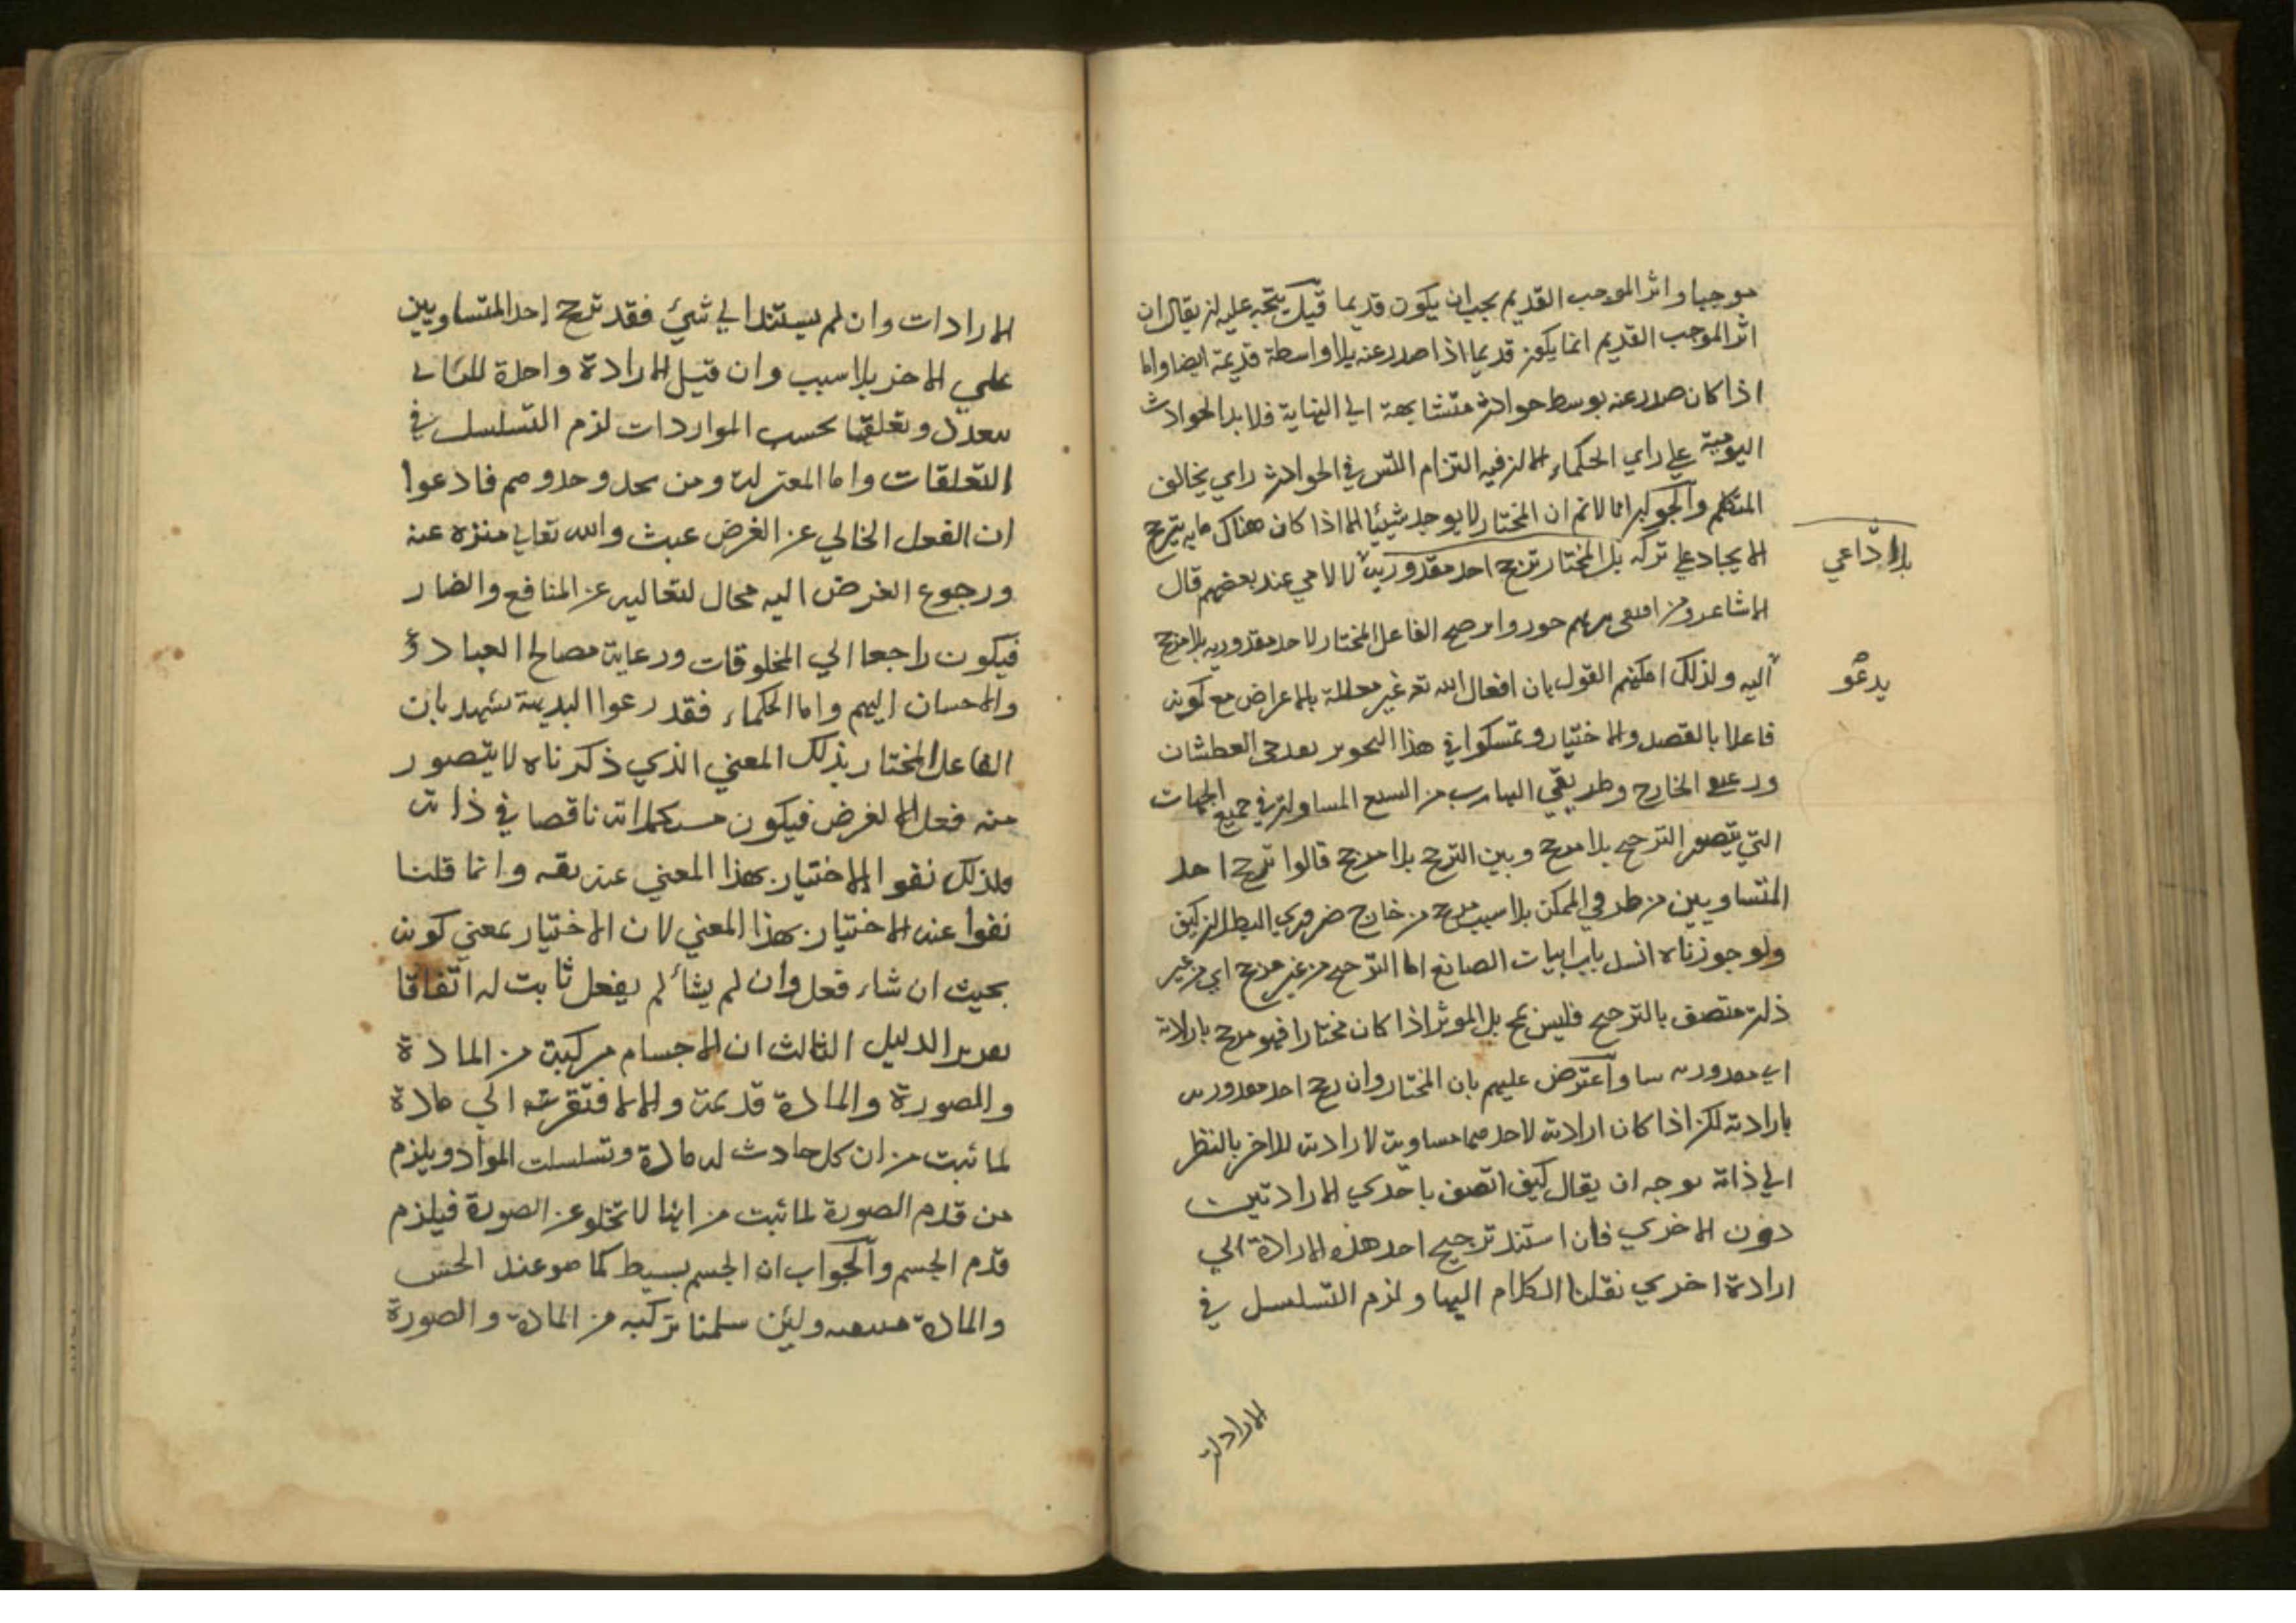 موجبا واثر الموجب القديم يجب ان يكون قديما قيل يتجه عليه ان يقال ان
اثر الموجب القديم انما يكون قديما اذا صدر عنه بلا واسطة قديمة ايضا واما
اذا كان صدر عنه بوسط حوادث متشابهة الي النهاية فلا بد الحوادث
اليومية علي راي الحكماء الا ان فيه التزام التس في الحوادث راي يخالف
المتكلم والجواب انا لا نم ان المختار لا يوجد شيئا الا اذا كان هناك ما به يترجح
الايجاد علي تركه بل المختار ترجح احد مقدوريه لا لامي عند بعضهم قال
بلا داعي
الاشاعر ومن جور وا ترجح الفاعل المختار لاحد مقدوريه بلا مرجح
يدعو
اليه ولذلك امكنهم القول بان افعال الله تعه غير معللة بالاعراض مع كونه
فاعلا بالقصد والاختيار وتمسكوا في هذا التجوير بقدحي العطشان
ورغيفي الخارج وطريقي الهارب من السبع المساوية في جميع الجهات
التي يتصور الترجح بلا مرجح وبين الترجح بلا مرجح قالوا ترجح احد
المتساويين من طرفي الممكن بلا سبب مرجح من خارج ضروري البطلان كيف
ولو جوزناه انسد باب اثبات الصانع اما الترجح من غير مرجح اي من غير
ذات متصف بالترجح فليس بمح بل الموثر اذا كان مختارا فهو مرجح بارادته
اي مقدوريه سا واعترض عليهم بان المختار وان رجح احد مقدوريه
بارادته لكن اذا كان ارادته لاحدهما مساوية لارادته للاخر بالنظر
الي ذاته توجه ان يقال كيف اتصف باحدي الارادتين
دون الاخري فان استند ترجيح احد هذه الارادة الي
ارادة اخري نقلنا الكلام اليها ولزم التسلسل في
الارادات
الارادات وان لم يستند الي شيئ فقد ترجح احد المتساويين
علي الاخر بلا سبب وان قيل الارادة واحدة
وتعلقها بحسب المرادات لزم التسلسل في
التعلقات واما المعتزلة ومن يحذ وحذوهم فادعوا
ان الفعل الخالي عن الغرض عبث والله تعالي منزه عنه
ورجوع الغرض اليه محال لتعاليه عن المنافع والضار
فيكون راجعا الي المخلوقات ورعاية مصالح العباد
والاحسان اليهم واما الحكماء فقد رعوا البديهة تشهد بان
الفاعل المختار بذلك المعني الذي ذكرناه لا يتصور
منه فعل الا لغرض فيكون ناقصا في ذاته
ولذلك نفوا الاختيار بهذا المعني عنه تقه وانما قلنا
نفوا عنه الاختيار بهذا المعني لان الاختيار بمعني كونه
بحيث ان شاء فعل وان لم يشأ لم يفعل ثابت له اتفاقا
تقرير الدليل الثالث ان الاجسام مركبة من المادة
والصورة والمادة قديمة والا لافتقرت الي مادة
لما ثبت من ان كل حادث له مادة وتسلسلت المواد ويلزم
من قدم الصورة لما ثبت من انها لا تخلو عن الصورة فيلزم
قدم الجسم والجواب ان الجسم بسيط كما هو عند الحس
والمادة ولئن سلمنا تركبه من المادة والصورة